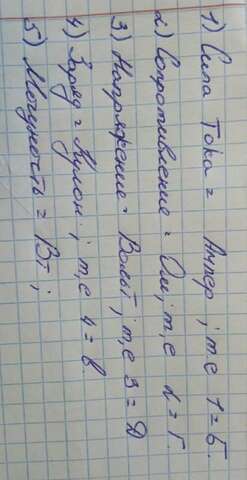 1) Сила тока = Ампер; т.е 1=Б.
2) Сопротивление = Ом; т,е 2=Г.
3) Напряжение = Вольт; т,е 3=Д
4) Заряд = Кулон; т,е 4=В.
5) Мощность = Вт;